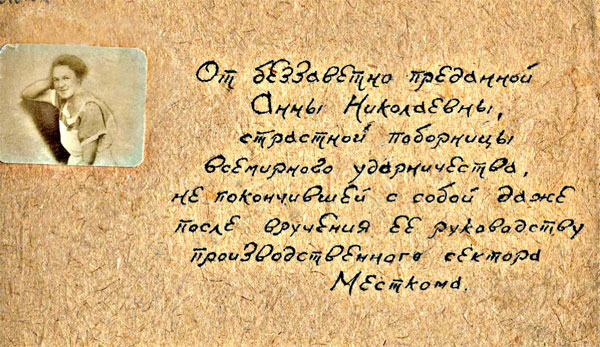 От беззаветно преданной
Анны Николаевны,
страстной поборницы
всемирново ударничества,
не покончившей с собой даже
после вручения ее руководству
производственнаго сектора
Месткома.